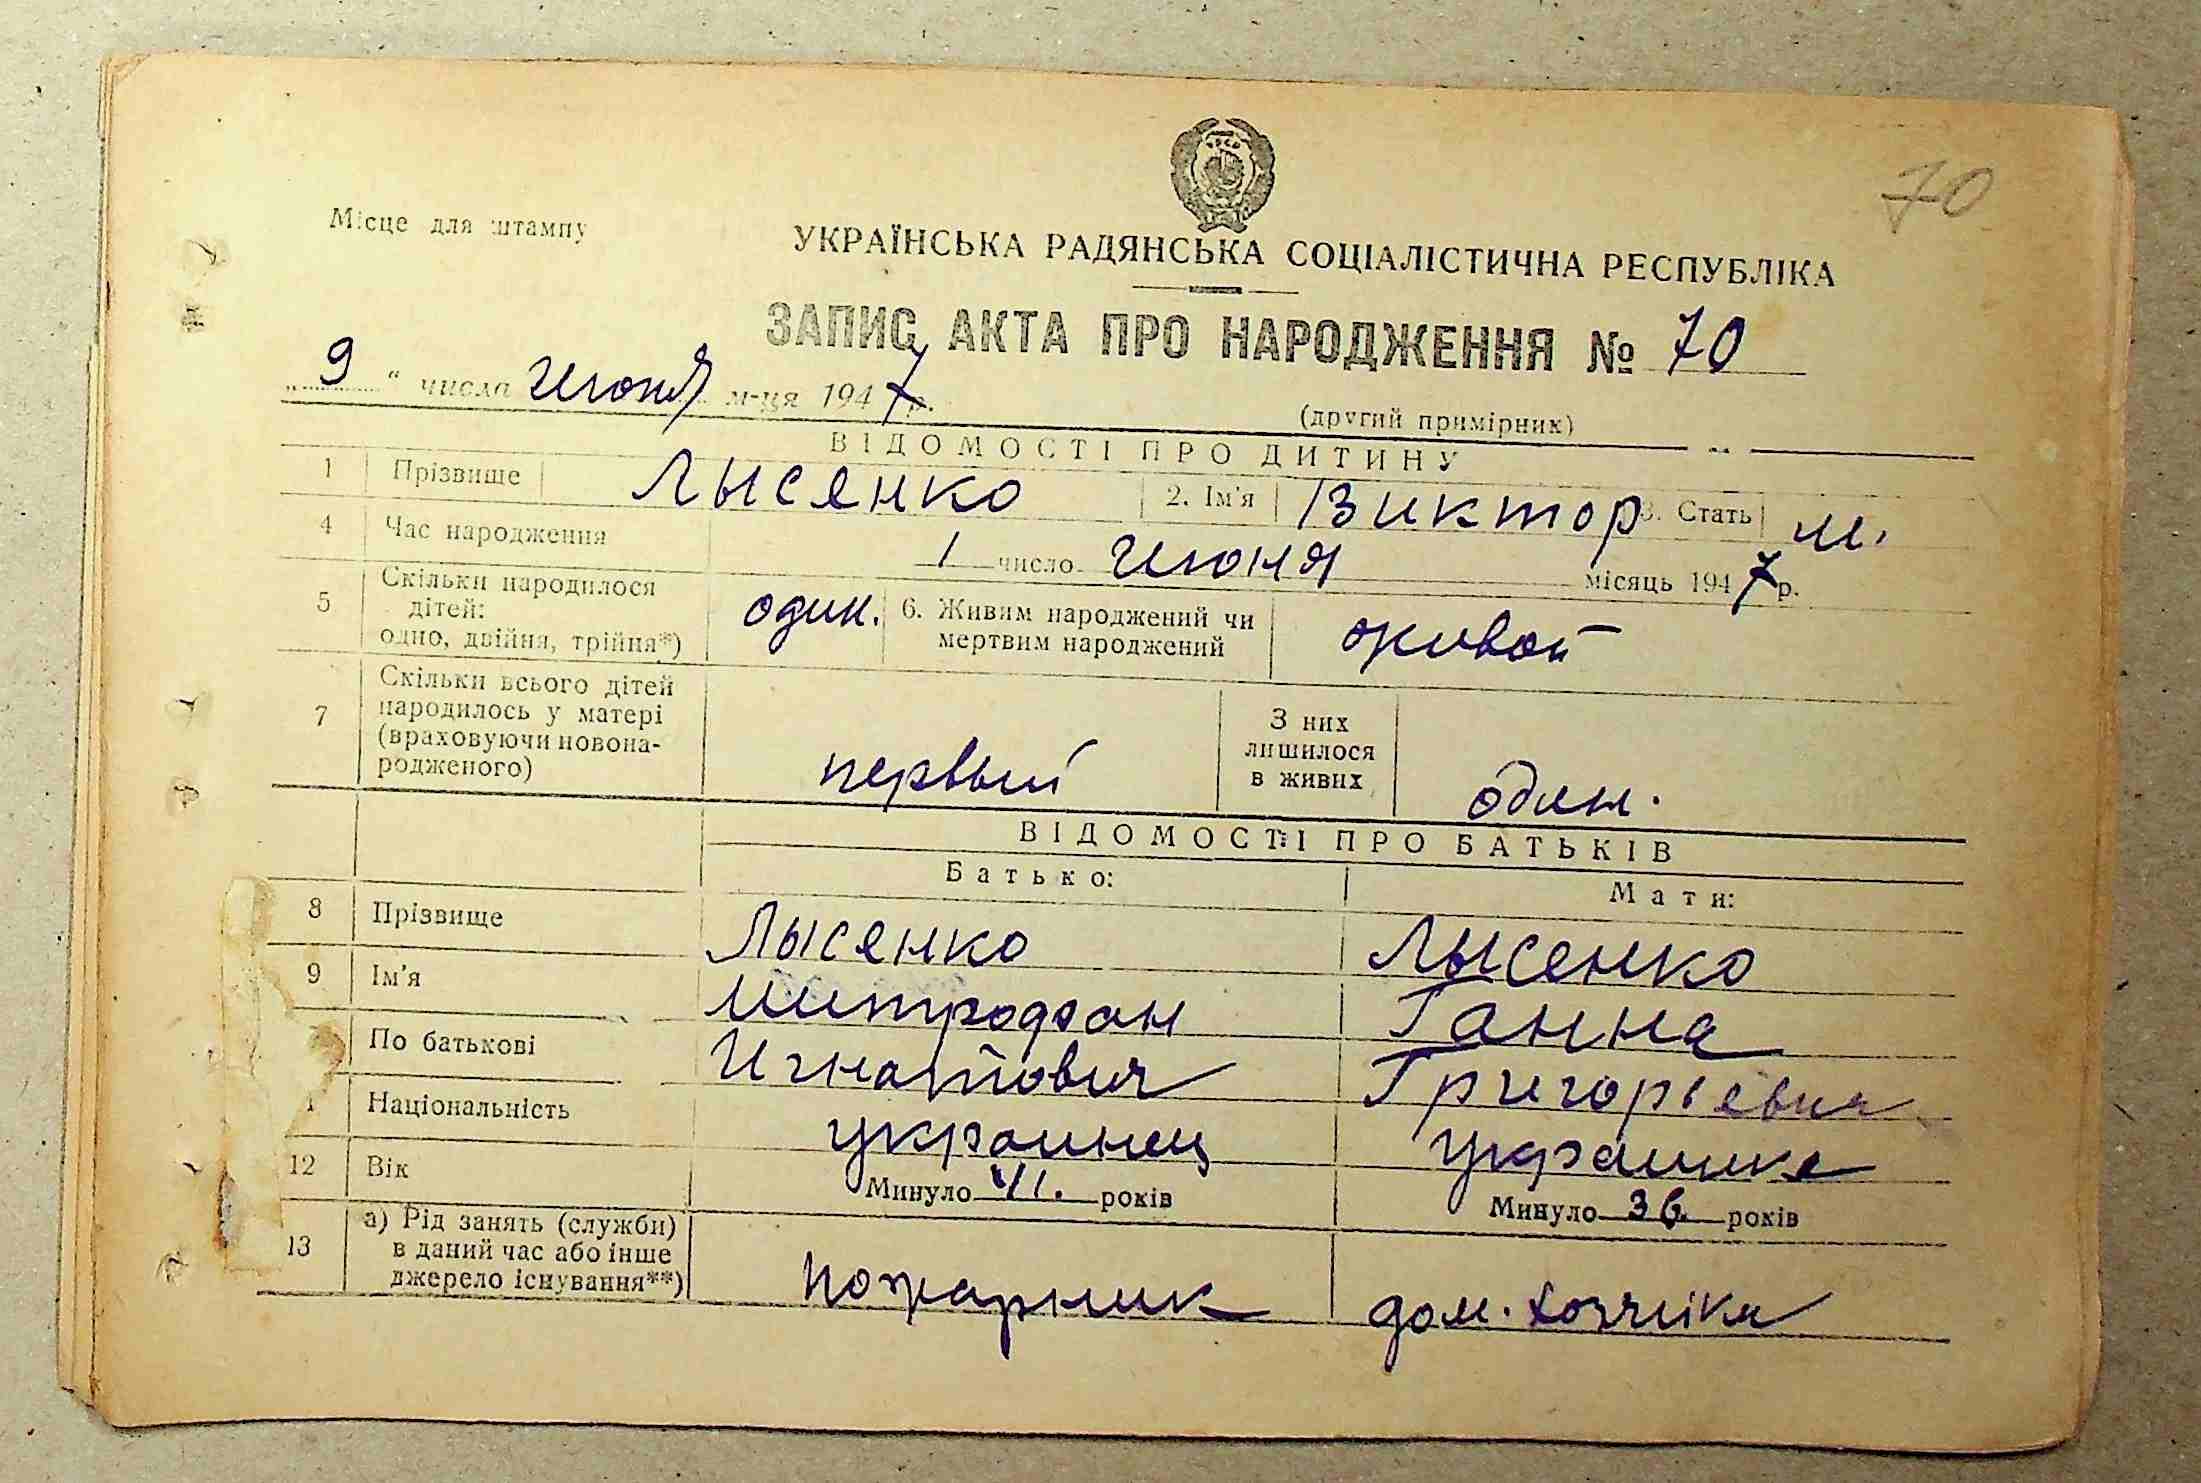 70
Місце для штампу
УКРАЇНСЬКА РАДЯНСЬКА СОЦІАЛІСТИЧНА РЕСПУБЛІКА
ЗАПИС АКТА ПРО НАРОДЖЕННЯ № 70
„ 9 “ числа июня м-ця 1947 р.
(другий примірник)
ВІДОМОСТІ ПРО ДИТИНУ
1 Прізвище Лысенко 2. Ім'я Виктор 3. Стать м.
4 Час народження 1 число июня місяць 1947 р.
5 Скільки народилося
дітей:
одно, двійня, трійня*) один.
6. Живим народжений чи
мертвим народжений живой
7 Скільки всього дітей
народилось у матері
(враховуючи новона-
родженого) первый
З них
лишилося
в живих один.
ВІДОМОСТІ ПРО БАТЬКІВ
Батько: Мати:
8 Прізвище Лысенко Лысенко
9 Ім'я Митрофан Ганна
По батькові Игнатович Григорьевна
1 Національність украинец украинка
12 Вік Минуло 41. років Минуло 36. років
13 а) Рід занять (служби)
в даний час або інше
джерело існування**) пожарник дом.